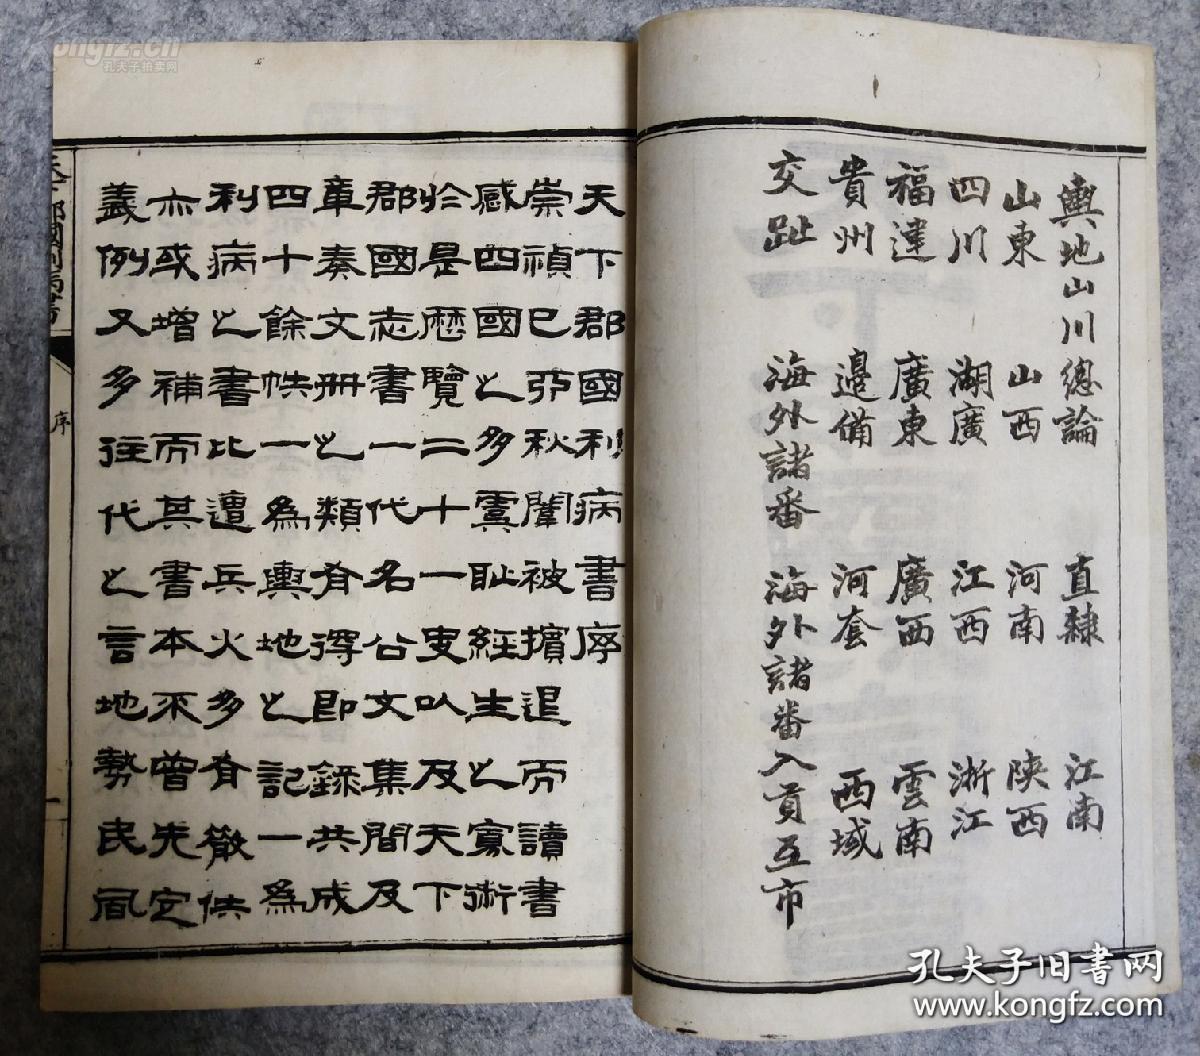 輿地山川總論 直隸 江南
山東 山西 河南 陝西
四川 湖廣 江西 浙江
福建 廣東 廣西 雲南
貴州 邊備 河套 西域
交趾 海外諸番 海外諸番入貢互市
天下郡國利病書序
崇禎己卯秋闈被擯退而讀書
感四國之多虞恥經生之寡術
於是歷覽二十一史以及天下
郡國志書一代名公文集間及
章奏文冊之類有得即錄共成
四十餘帙一為輿地之記一為
利病之書比遭兵火多有散佚
亦或增補而其書本不曾先定
義例又多往代之言地勢民風
天下郡國利病書 序 一
Kongfz.cn
孔夫子拍卖网
孔夫子旧书网
www.kongfz.com